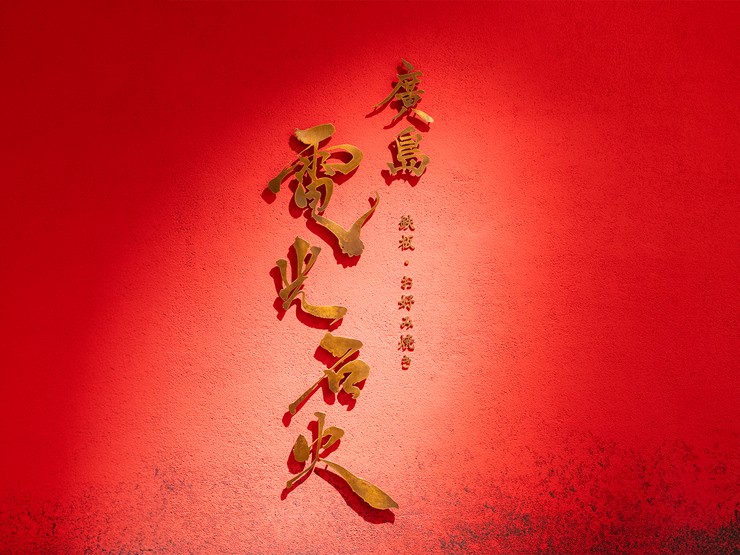 廣島
鉄板・お好み焼き
電光石火